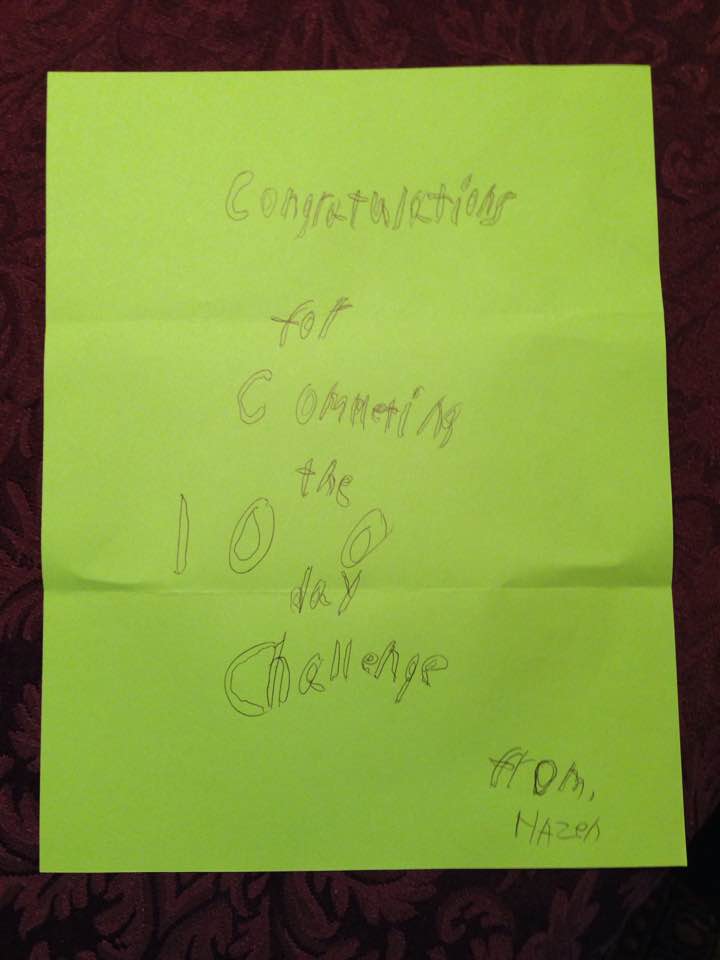 Congratulations
for
Commeting
the
100
day
Challenge
from,
Hazen